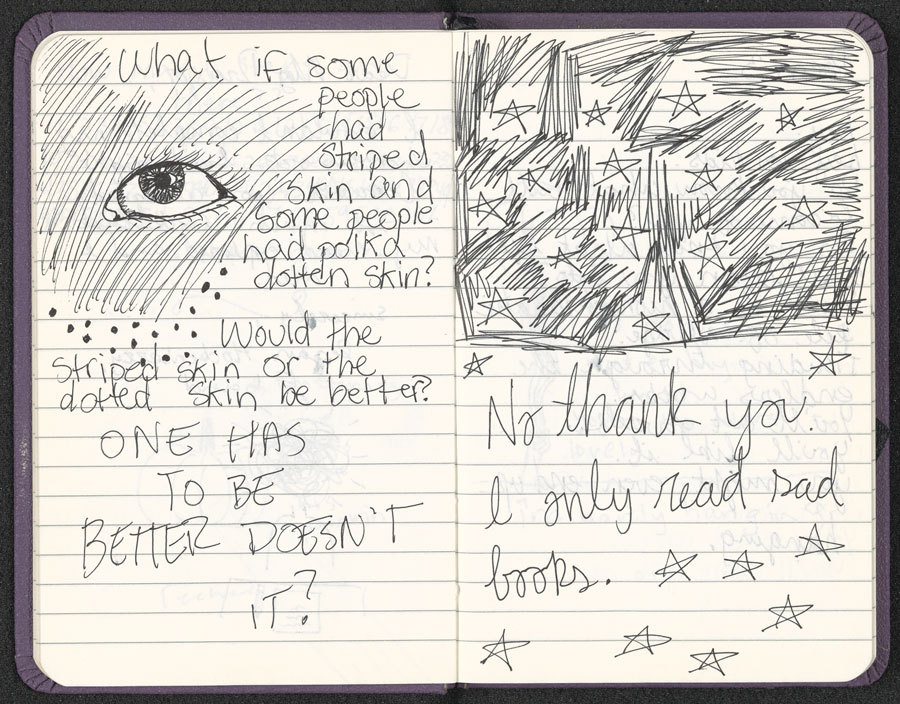 What if some
people
had
striped
skin and
some people
had polka
dotten skin?
Would the
striped skin or the
dotted skin be better?
ONE HAS
TO BE
BETTER DOESN'T
IT?
No thank you.
I only read sad
books.